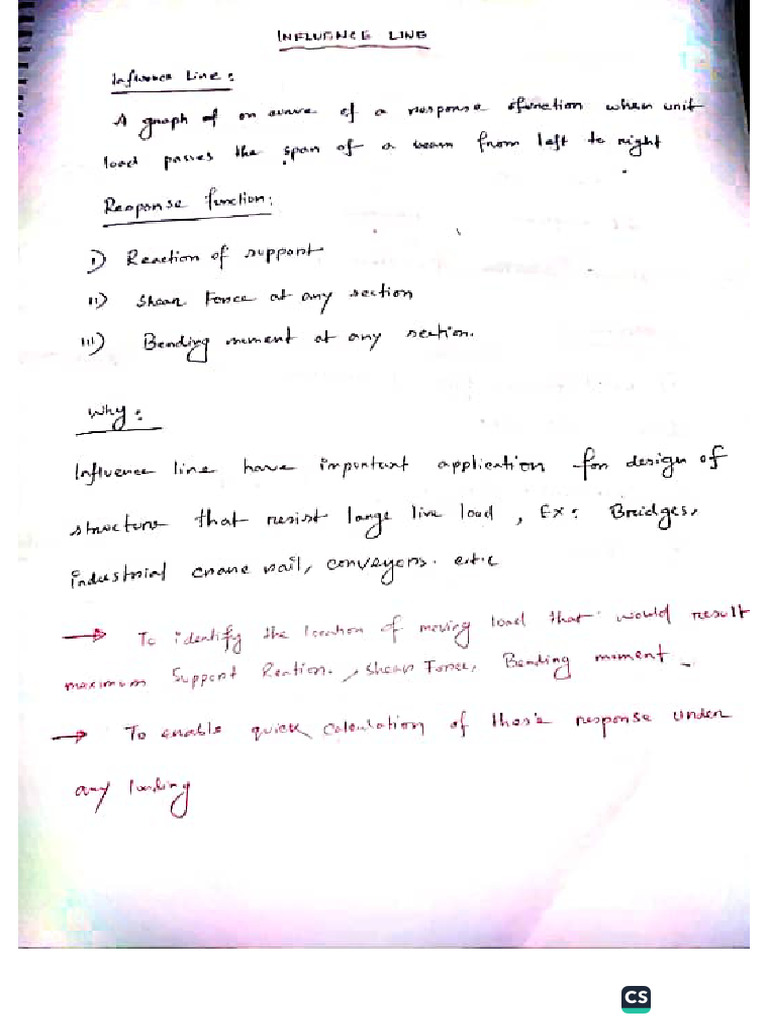 INFLUENCE LINE
Influence Line:
A graph of on curve of a response function when unit
load passes the span of a beam from left to right
Response function:
I) Reaction of support
II) Shear Force at any section
III) Bending moment at any section.
Why:
Influence line have important application for design of
structure that resist large live load, Ex: Bridges,
industrial crane rail, conveyors. et.c
→ To identify the location of moving load that would result
maximum Support Reation., Shear Force, Bending moment.
→ To enable quick calculation of thos's response under
any loading
CS